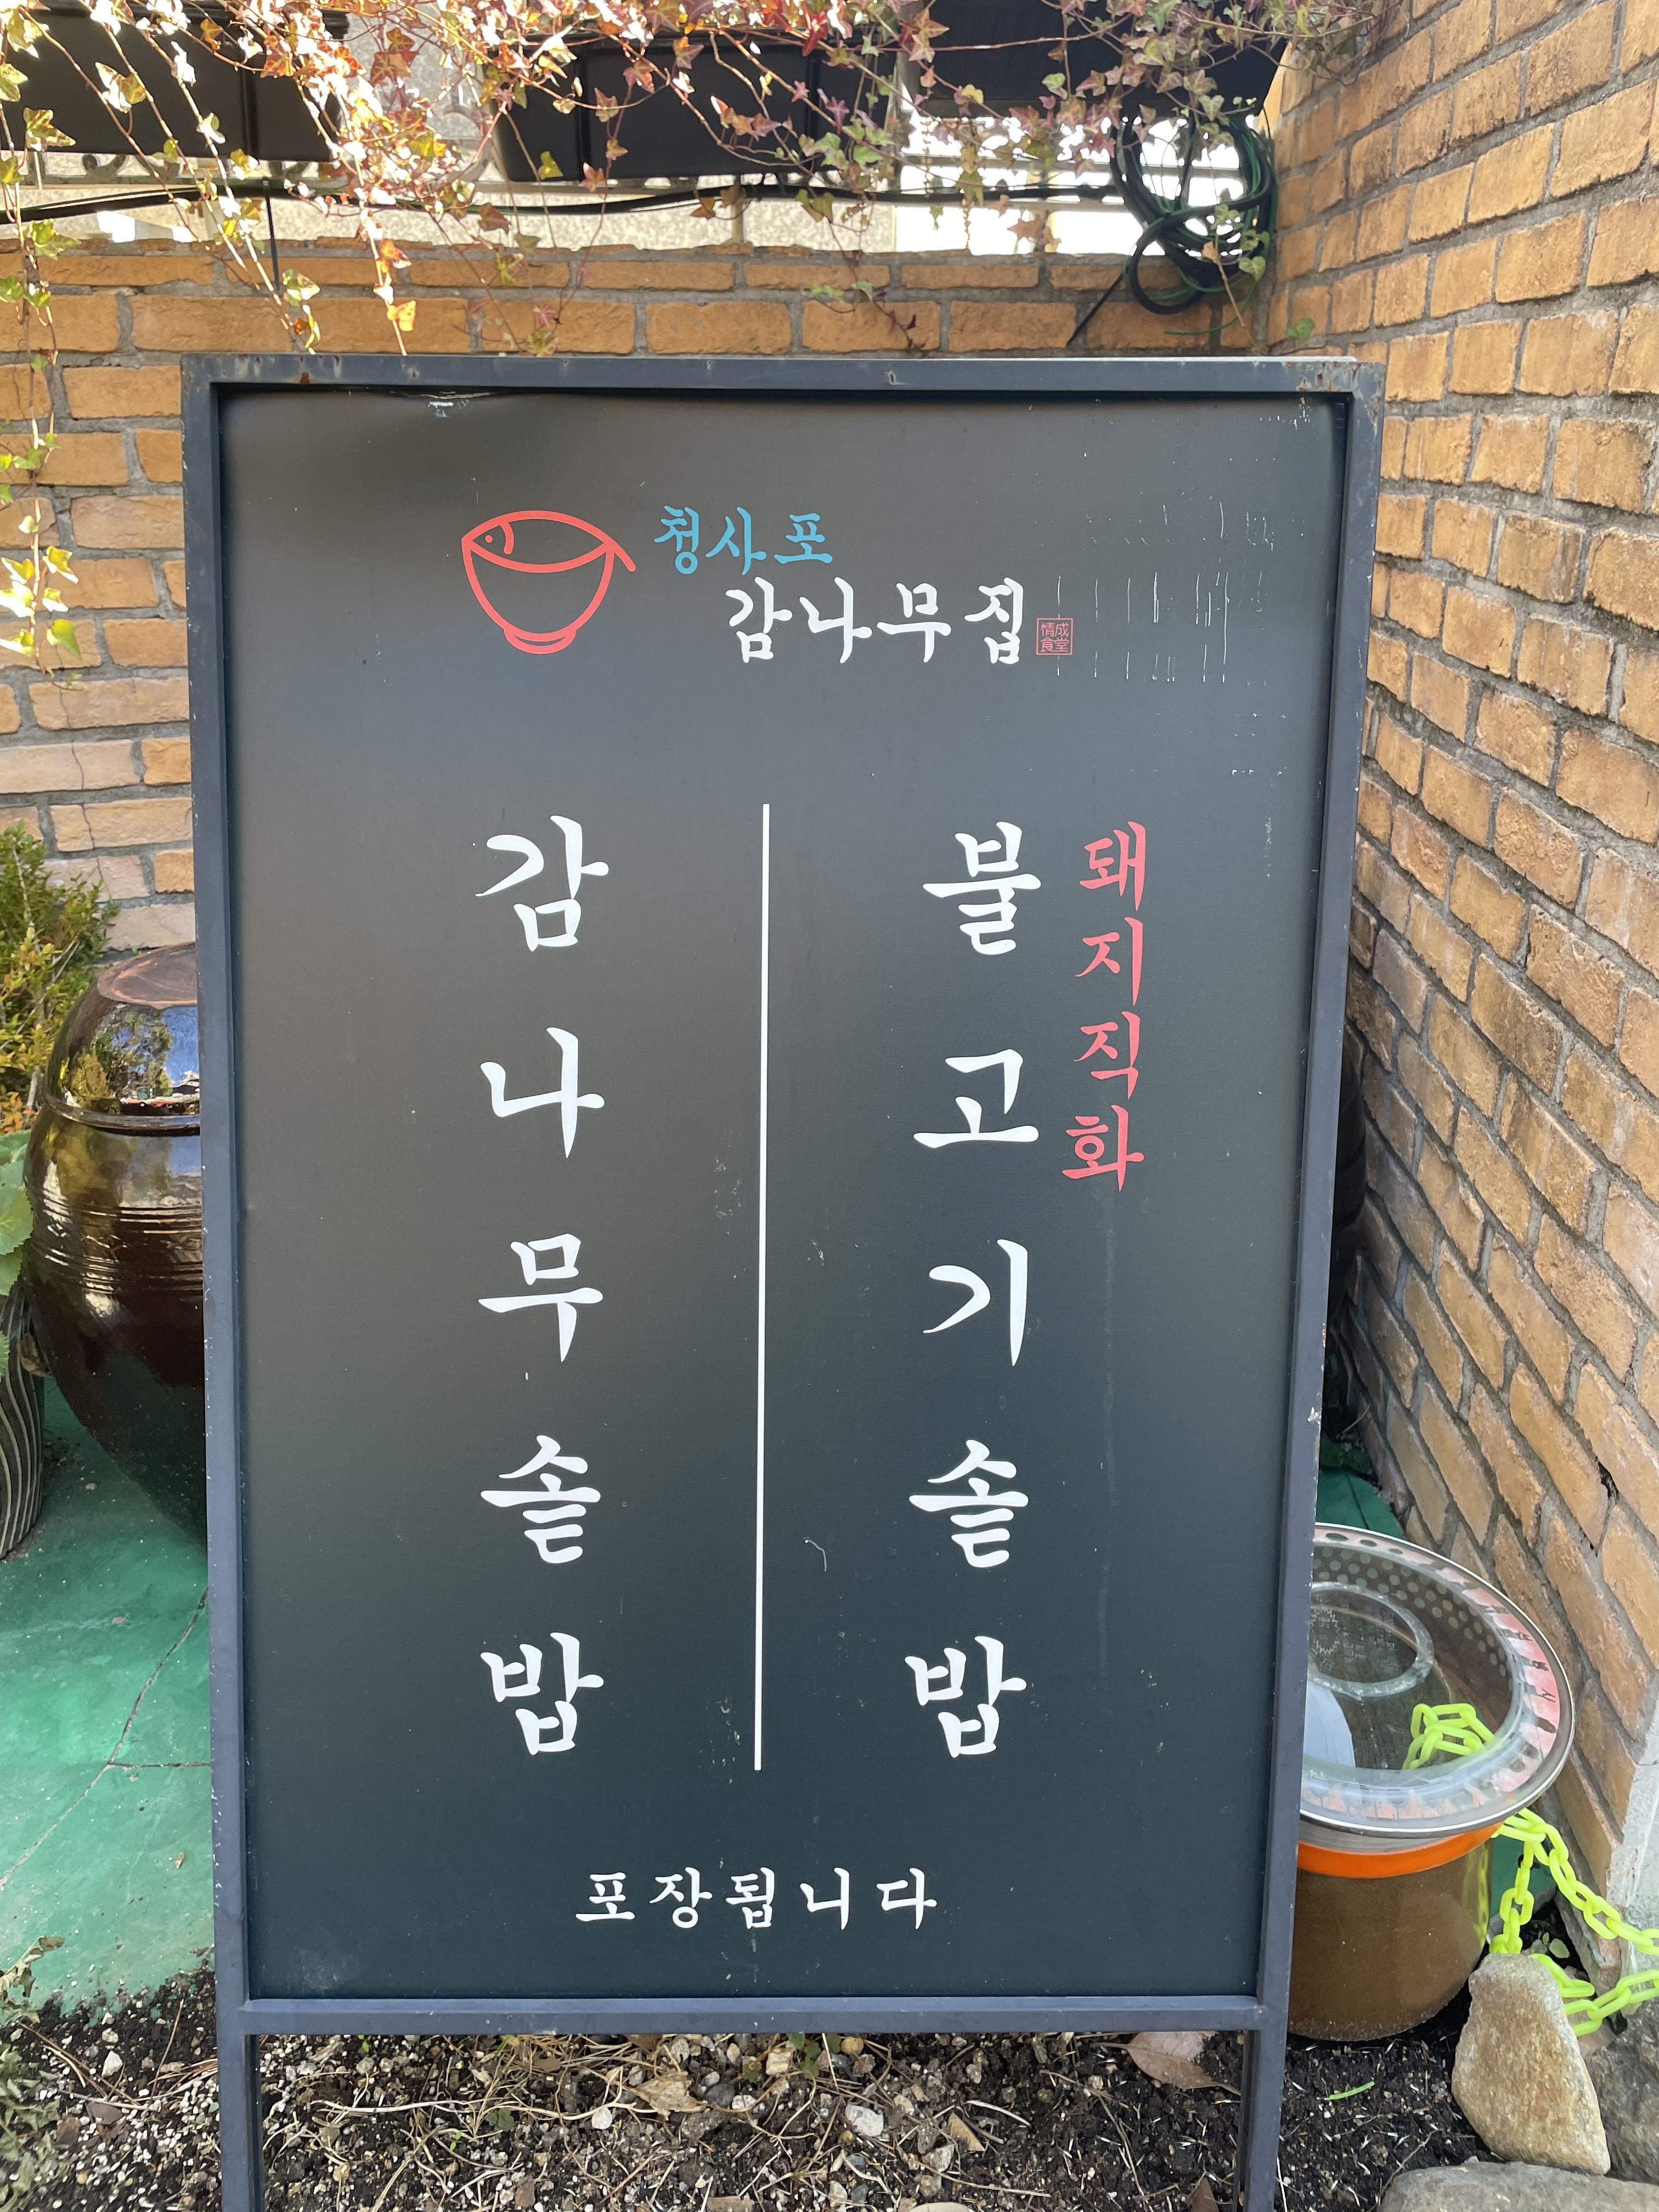 청사포
감나무집
情成
食堂
돼지직화
불고기솥밥
감나무솥밥
포장됩니다